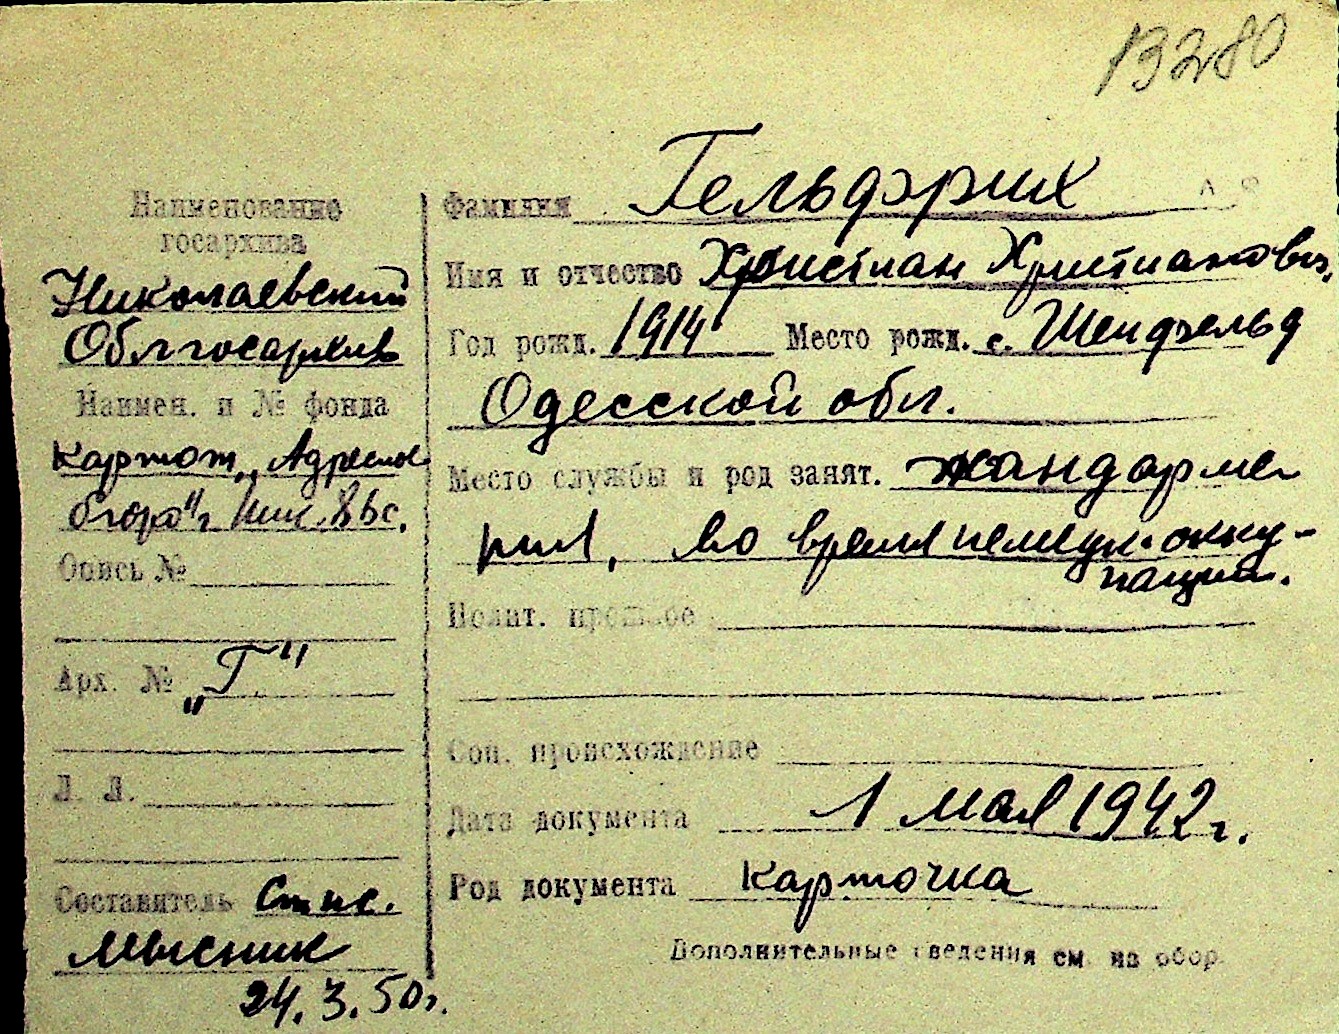 13280
Наименование
госархива
Николаевский
Облгосархив
Наимен. и № фонда
картот. „Адресные
бюро" г. Ник.
Опись №
Арх. № „Г"
Л. Л.
Составитель
Мысник
24.3.50г.
Фамилия Гельфрих
Имя и отчество Христиан Христианович
Год рожд. 1914 Место рожд. с. Шенфельд
Одесской обл.
Место службы и род занят. жандарме
рия, во время немецк. окку-
пации.
Полит. прошлое
Соц. происхождение
Дата документа 1 мая 1942г.
Род документа карточка
Дополнительные сведения см. на обор.